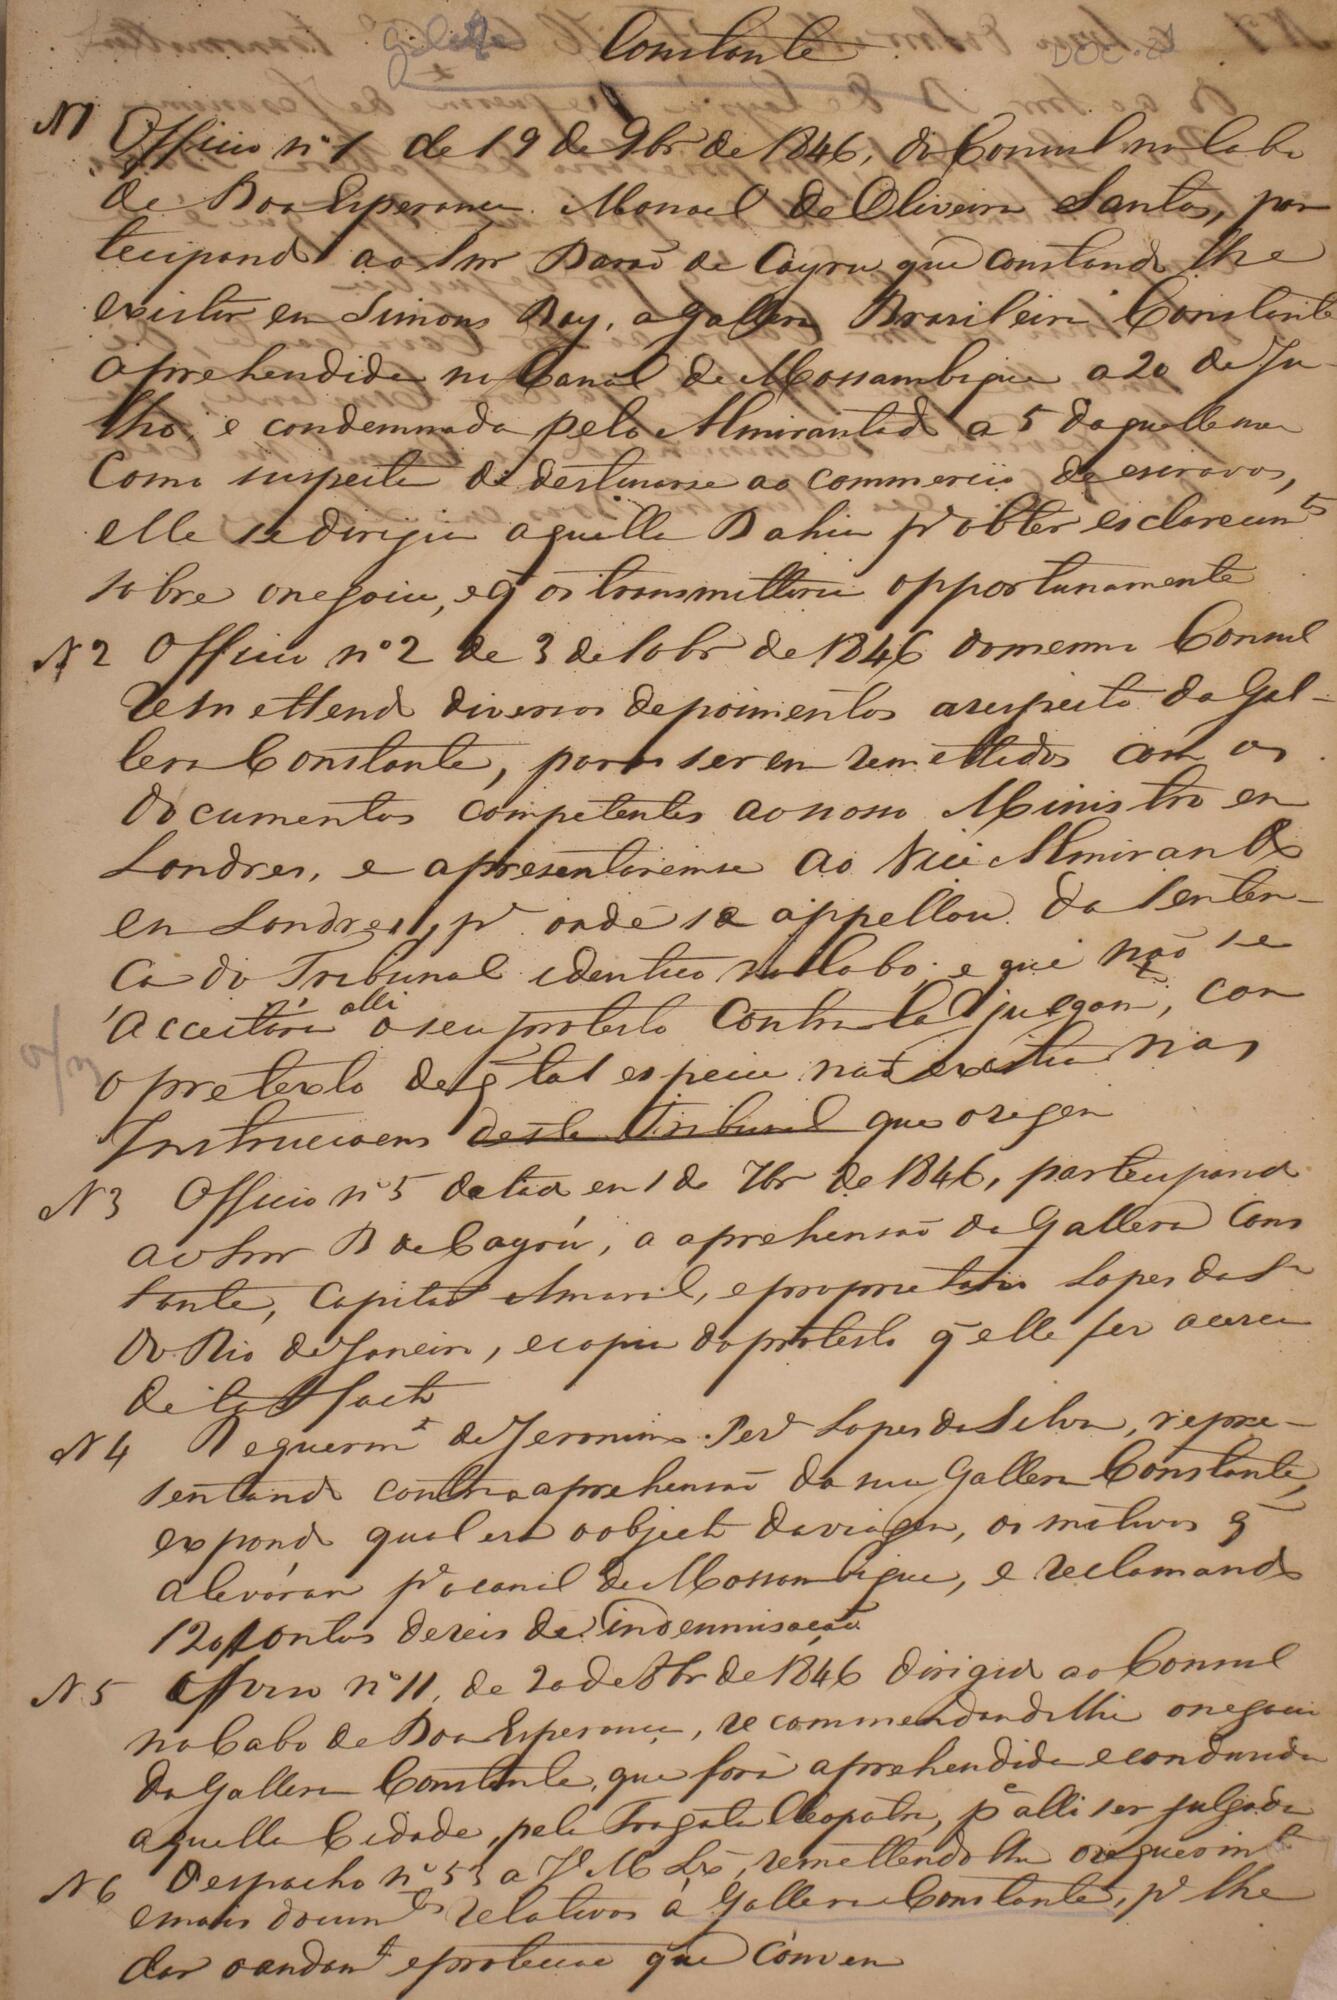 Constante
N1 Officio nº 1 de 19 de 9br de 1846, do Consul no Cabo
de Boa Esperança Manoel de Oliveira Santos, par
tecipando ao Snr Barão de Cayru que constando lhe
existir em Simons Bay, a Gallera Brasileira Constante
aprehendida no Canal de Mossambique a 20 de Ju-
lho, e condemnada pelo Almirantado a 5 daquelle mez
como suspeita de destinarse ao commercio de escravos,
elle se dirigia aquella Bahia pª obter esclarecimtos
sobre o negocio, e q̃ os transmitteria opportunamente
N2 Officio nº 2 de 3 de 10br de 1846 do mesmo Consul
remettendo diversos depoimentos a respeito da Gal-
lera Constante, para serem remettidos com os
documentos competentes ao nosso Ministro em
Londres, e apresentaremse ao Vice Almirantado
em Londres, pª onde se appellou da senten-
ca do Tribunal identico no Cabo; e que não se
acceitára alli o seu protesto contra tal julgamto, com
o pretexto de q̃ tal especie não existia nas
Instrucçoens deste Tribunal que o regem
N3 Officio nº 5 datado em 1 de 7br de 1846, partecipando
ao Snr B de Cayrú, a aprehensão da Gallera Cons
tante, Capitão Amaral, e proprietario Lopes da Sª
do Rio de Janeiro, e copia do protesto q̃ elle fez acerca
de tal facto
N4 Requerimto de Jeronimo Lopes da Silva, repre-
sentando contra a aprehensão da sua Gallera Constante,
expondo qual era o objecto da viagem, os motivos q̃
a leváram pª o canal de Mossambique, e reclamando
120 contos de reis de indemnisação
N5 Officio nº 11, de 20 de 8br de 1846 dirigido ao Consul
no Cabo de Boa Esperança, recommendandolhe o negocio
da Gallera Constante, que fora aprehendida e conduzida
aquella Cidade, pela Fragata Cleopatra, pª alli ser julgada
N6 Despacho nº 53 a J. M. Lxª, remettendo lhe o requerimto
e mais documtos relativos á Gallera Constante, pª lhe
dar o andamto e protecção que convem